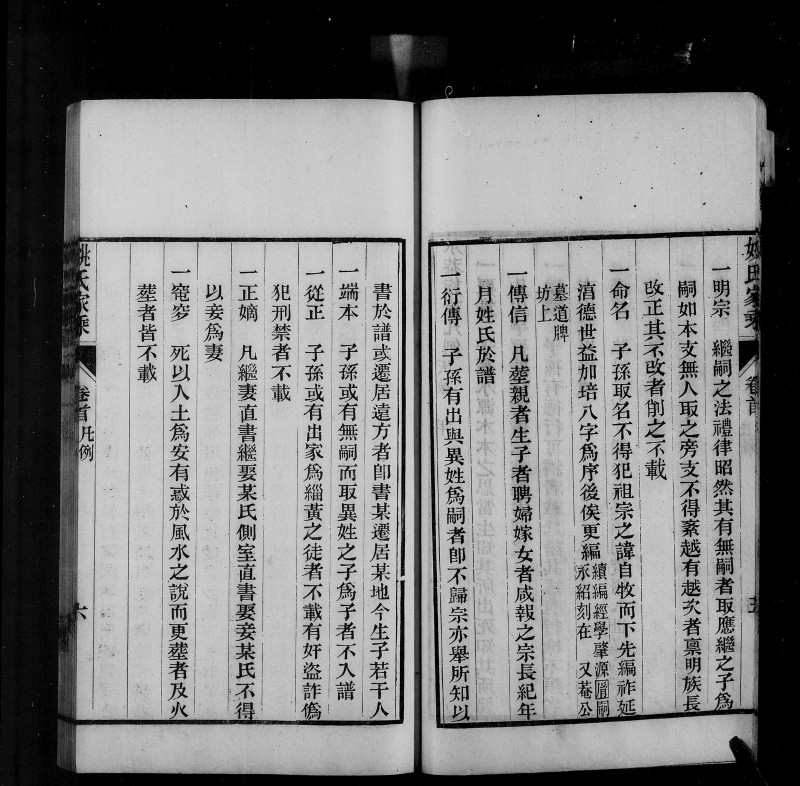 姚氏家乘
卷首
五
一明宗 繼嗣之法禮律昭然其有無嗣者取應繼之子為
嗣如本支無人取之旁支不得紊越有越次者稟明族長
改正其不改者削之不載
一命名 子孫取名不得犯祖宗之諱自牧而下先編祚延
淸德世益加培八字爲序後俟更編續編經學肇源
永紹刻在 又菴公
墓道牌
坊上
一傳信 凡塟親者生子者聘婦嫁女者咸報之宗長紀年
月姓氏於譜
一衍傳 子孫有出與異姓爲嗣者卽不歸宗亦舉所知以
書於譜或遷居遠方者卽書某遷居某地今生子若干人
一端本 子孫或有無嗣而取異姓之子爲子者不入譜
一從正 子孫或有出家爲緇黃之徒者不載有奸盜詐僞
犯刑禁者不載
一正嫡 凡繼妻直書繼娶某氏側室直書娶妾某氏不得
以妾爲妻
一窀穸 死以入土爲安有惑於風水之說而更塟者及火
塟者皆不載
姚氏家乘
卷首 凡例
六